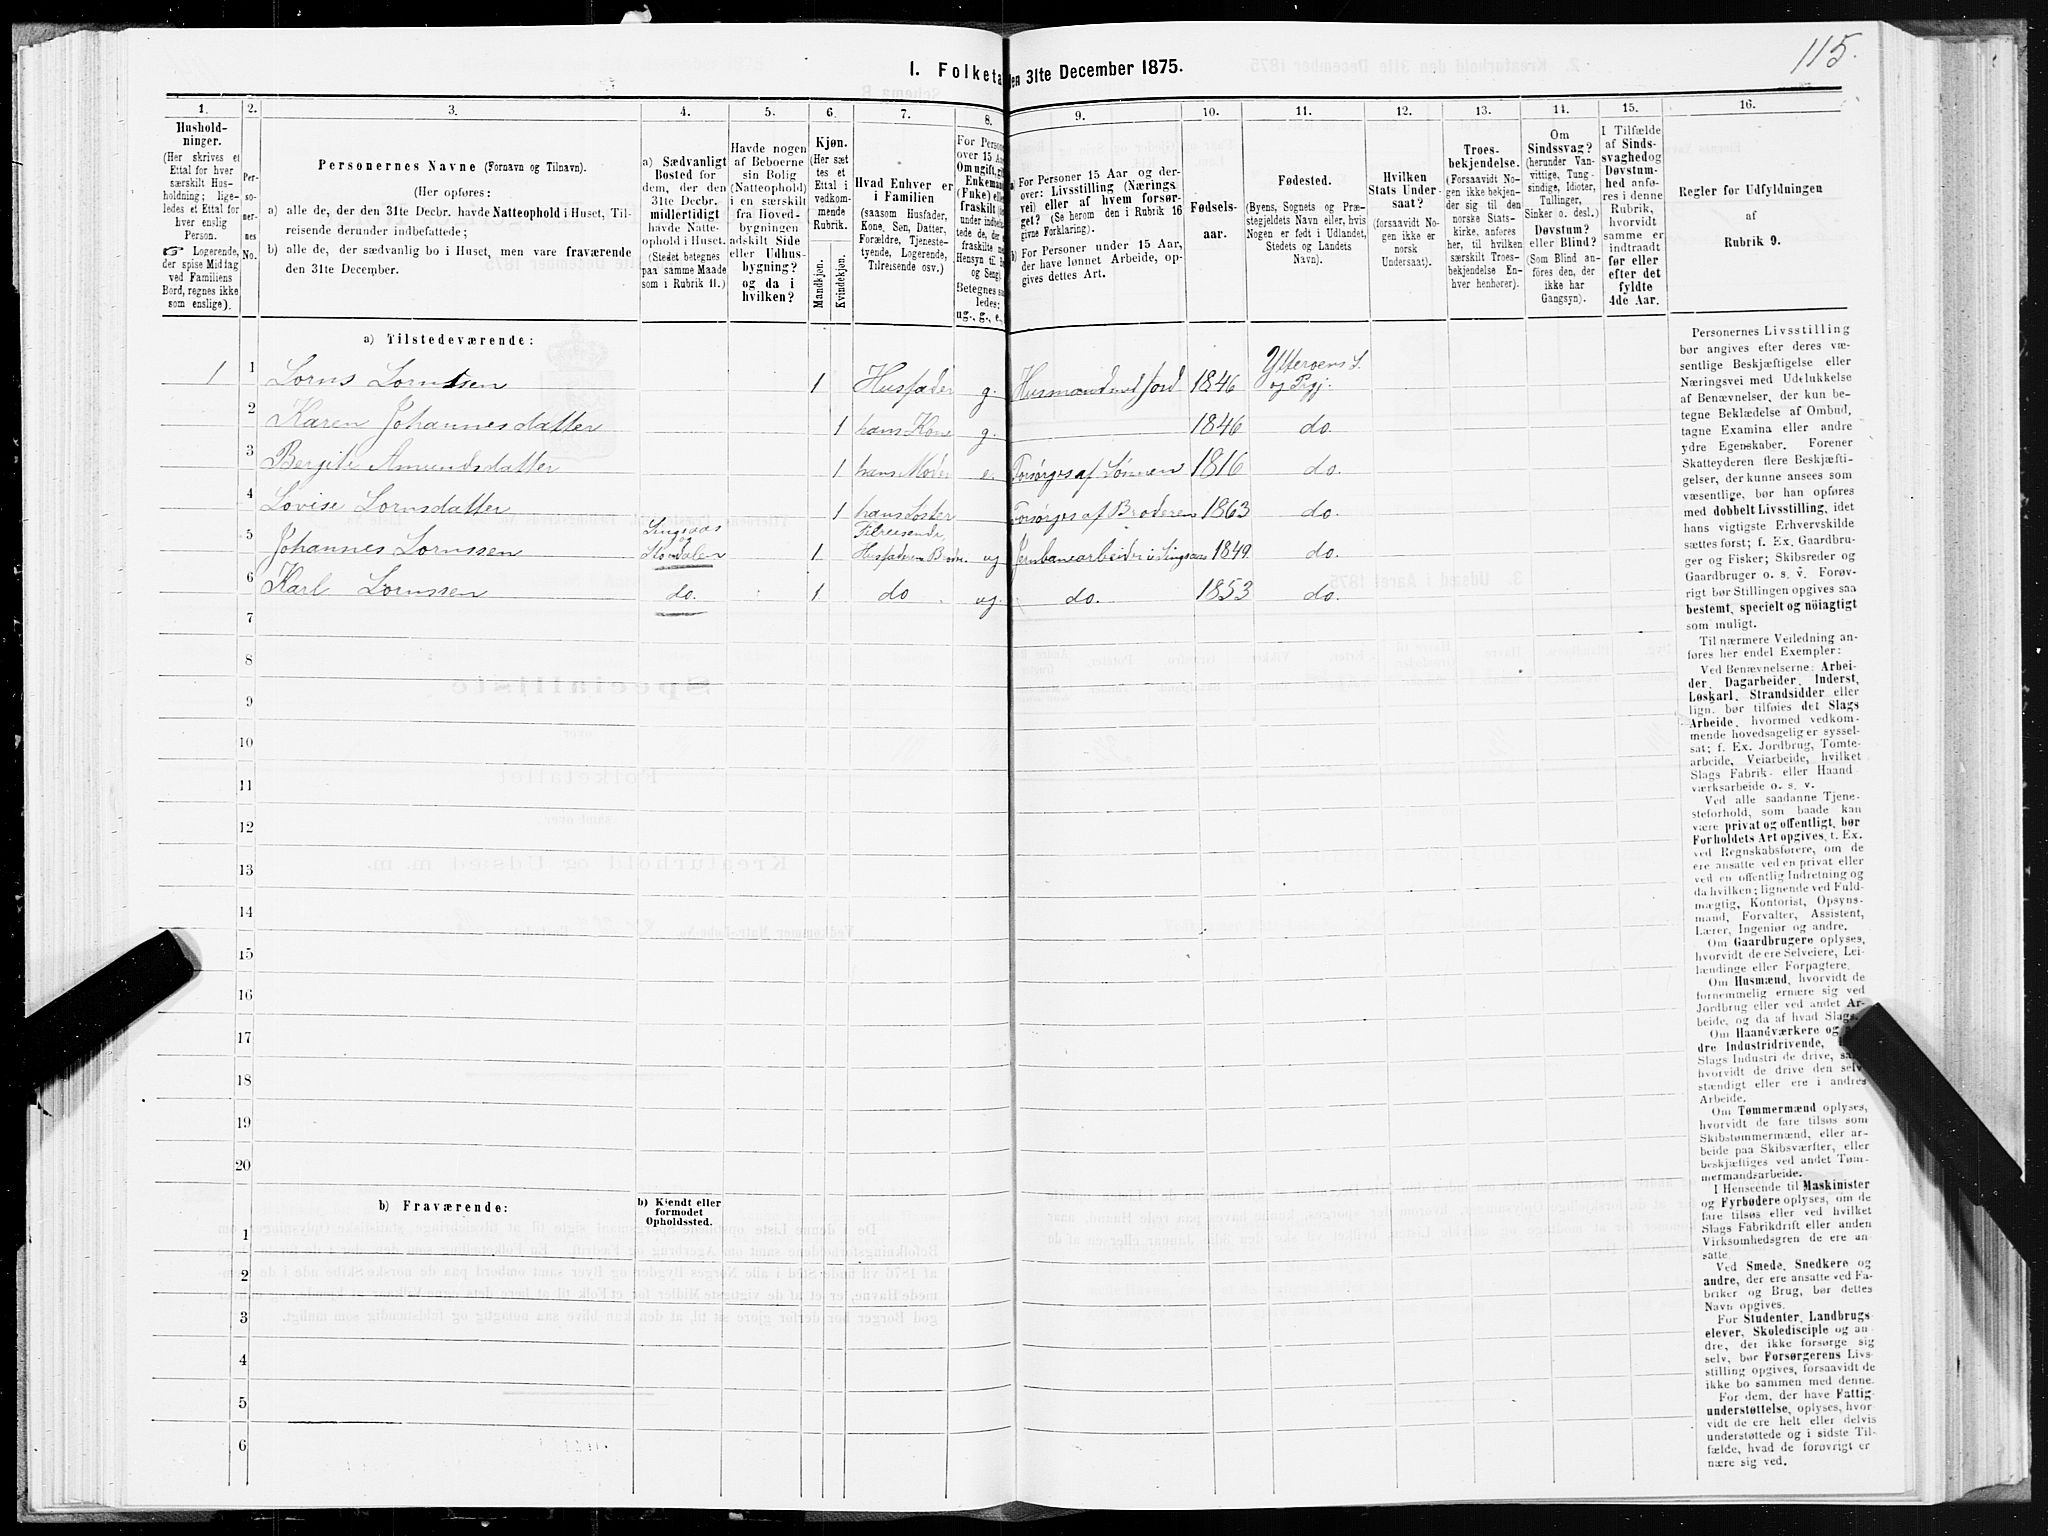 115.
I. Folketa
en 31te December 1875.
1.
2.
3.
4.
5.
6.
7.
8.
9.
10.
11.
12.
13.
14.
15.
16.
Hushold-
ninger.
(Her skrives et
Ettal for hver
særskilt Hus-
holdning; lige-
ledes et Ettal for
hver enslig
Person.
☞ Logerende,
der spise Middag
ved Familiens
Bord, regnes ikke
som enslige).
Per-
so-
ner-
nes
No.
Personernes Navne (Fornavn og Tilnavn).
(Her opføres:
a) alle de, der den 31te Decbr. havde Natteophold i Huset, Til-
reisende derunder indbefattede;
b) alle de, der sædvanlig bo i Huset, men vare fraværende
den 31te December.
a) Sædvanligt
Bosted for
dem, der den
31te Decbr.
midlertidigt
havde Natte-
ophold i Huset.
(Stedet betegnes
paa samme Maade
som i Rubrik 11.)
Havde nogen
af Beboerne
sin Bolig
(Natteophold)
i en særskilt
fra Hoved-
bygningen
adskilt Side
eller Udhus-
bygning?
og da i
hvilken?
Kjøn.
(Her sæt
tes et
Ettal i
vedkom-
mende
Rubrik.
Mandkjøn.
Kvindekjøn.
Hvad Enhver er
i Familien
(saasom Husfader,
Kone, Søn, Datter,
Forældre, Tjeneste-
tyende, Logerende,
Tilreisende osv.)
For Person
over 15 Aa
Om ugift, gi
Enkeman
(Enke) elle
fraskilt (he
under indbe
tede de, de
fraskilte me
Hensyn til B
og Seng).
Betegnes sa
ledes:
ug., g., e.,
a) For Personer 15 Aar og der-
over: Livsstilling (Nærings
vei) eller af hvem forsør-
get? (Se herom den i Rubrik 16
givne Forklaring).
b) For Personer under 15 Aar,
der have lønnet Arbeide, op-
gives dettes Art.
Fødsels-
aar.
Fødested.
(Byens, Sognets og Præ-
stegjeldets Navn eller, hvis
Nogen er født i Udlandet,
Stedets og Landets
Navn).
Hvilken
Stats Under-
saat?
(forsaavidt No-
gen ikke er
norsk
Undersaat).
Troes-
bekjendelse.
(Forsaavidt No-
gen ikke bekjen-
der sig til den
norske Stats-
kirke, anføres
her, til hvilken
særskilt Troes-
bekjendelse En-
hver henhører).
Om
Sindssvag?
(herunder Van-
vittige, Tung-
sindige, Idioter,
Tullinger,
Sinker o. desl.)
Døvstum?
eller Blind?
(Som Blind an-
føres den, der
ikke har
Gangsyn).
I Tilfælde
af Sinds-
svaghed og
Døvstum-
hed anfø-
res i denne
Rubrik,
hvorvidt
samme er
indtraadt
før eller
efter det
fyldte
4de Aar.
Regler for Udfyldningen
af
Rubrik 9.
a) Tilstedeværende:
1 1 Lorns Lorntsen 1 Husfader g. Husmand med Jord 1846 Ytterøens S.
og Prgj.
2 Karen Johannesdatter 1 hans Kone g. 1846 do.
3 Bergite Amundsdatter 1 hans Moder e. Forsørges af Sønnen 1816 do.
4 Lovise Lornsdatter 1 hans Søster Forsørges af Broderen 1863 do.
Singsaas
og Tilreisende,
5 Johannes Lornssen Støndalen 1 Husfaderens Broder. ug Jernbanearbeider i Singsaas 1849 do.
6 Karl Lornssen do. 1 do ug. do. 1853 do.
7
8
9
10
11
12
13
14
15
16
17
18
19
20
b) Fraværende:
b) Kjendt eller
formodet
Opholdssted.
1
2
3
4
5
6
Personernes Livsstilling
bør angives efter deres væ-
sentlige Beskjæftigelse eller
Næringsvei med Udelukkelse
af Benævnelser, der kun be-
tegne Beklædelse af Ombud,
tagne Examina eller andre
ydre Egenskaber. Forener
Skatteyderen flere Beskjæfti-
gelser, der kunne ansees som
væsentlige, bør han opføres
med dobbelt Livsstilling, idet
hans vigtigste Erhvervskilde
sættes først; f. Ex. Gaardbru-
ger og Fisker; Skibsreder og
Gaardbruger o. s. v. Forøv-
rigt bør Stillingen opgives saa
bestemt, specielt og nöiagtigt
som muligt.
Til nærmere Veiledning an-
føres her endel Exempler:
Ved Benævnelserne: Arbei-
der, Dagarbeider, Inderst,
Løskarl, Strandsidder eller
lign. bør tilføies det Slags
Arbeide, hvormed vedkom-
mende hovedsagelig er syssel-
sat; f. Ex. Jordbrug, Tomte-
arbeide, Veiarbeide, hvilket
Slags Fabrik- eller Haand
værksarbeide o. s. v.
Ved alle saadanne Tjene-
steforhold, som baade kan
være privat og offentligt, bør
Forholdets Art opgives, t. Ex.
ved Regnskabsførere, om de
ere ansatte ved en privat eller
ved en offentlig Indretning og
da hvilken; lignende ved Fuld-
mægtig, Kontorist, Opsyns-
mand, Forvalter, Assistent,
Lærer, Ingeniør og andre.
Om Gaardbrugere oplyses,
hvorvidt de ere Selveiere, Lei-
lændinge eller Forpagtere.
Om Husmænd, hvorvidt de
fornemmelig ernære sig ved
Jordbrug eller ved andet Ar-
beide, og da af hvad Slags.
Om Haandværkere og
dre Industridrivende,
Slags Industri de drive, sa
hvorvidt de drive den selv
stændigt eller ere i andres
Arbeide.
Om Tømmermænd oplyses,
hvorvidt de fare tilsøs som
Skibstømmermænd, eller ar-
beide paa Skibsværfter, eller
beskjæftiges ved andet Tøm-
mermandsarbeide.
I Henseende til Maskinister
og Fyrbødere oplyses, om de
fare tilsøs eller ved hvilket
Slags Fabrikdrift eller anden
Virksomhedsgren de ere an-
satte.
Ved Smede, Snedkere og
andre, der ere ansatte ved Fa-
briker og Brug, bør dettes
Navn opgives.
For Studenter, Landbrugs-
elever, Skoledisciple og an-
dre, der ikke forsørge sig
selv, bør Forsørgerens Livs-
stilling opgives, forsaavidt de
ikke bo sammen med denne.
For dem, der have Fattig-
understøttelse, oplyses, hvor-
vidt de ere helt eller delvis
understøttede og i sidste Til-
fælde, hvad de forøvrigt er
nære sig ved.